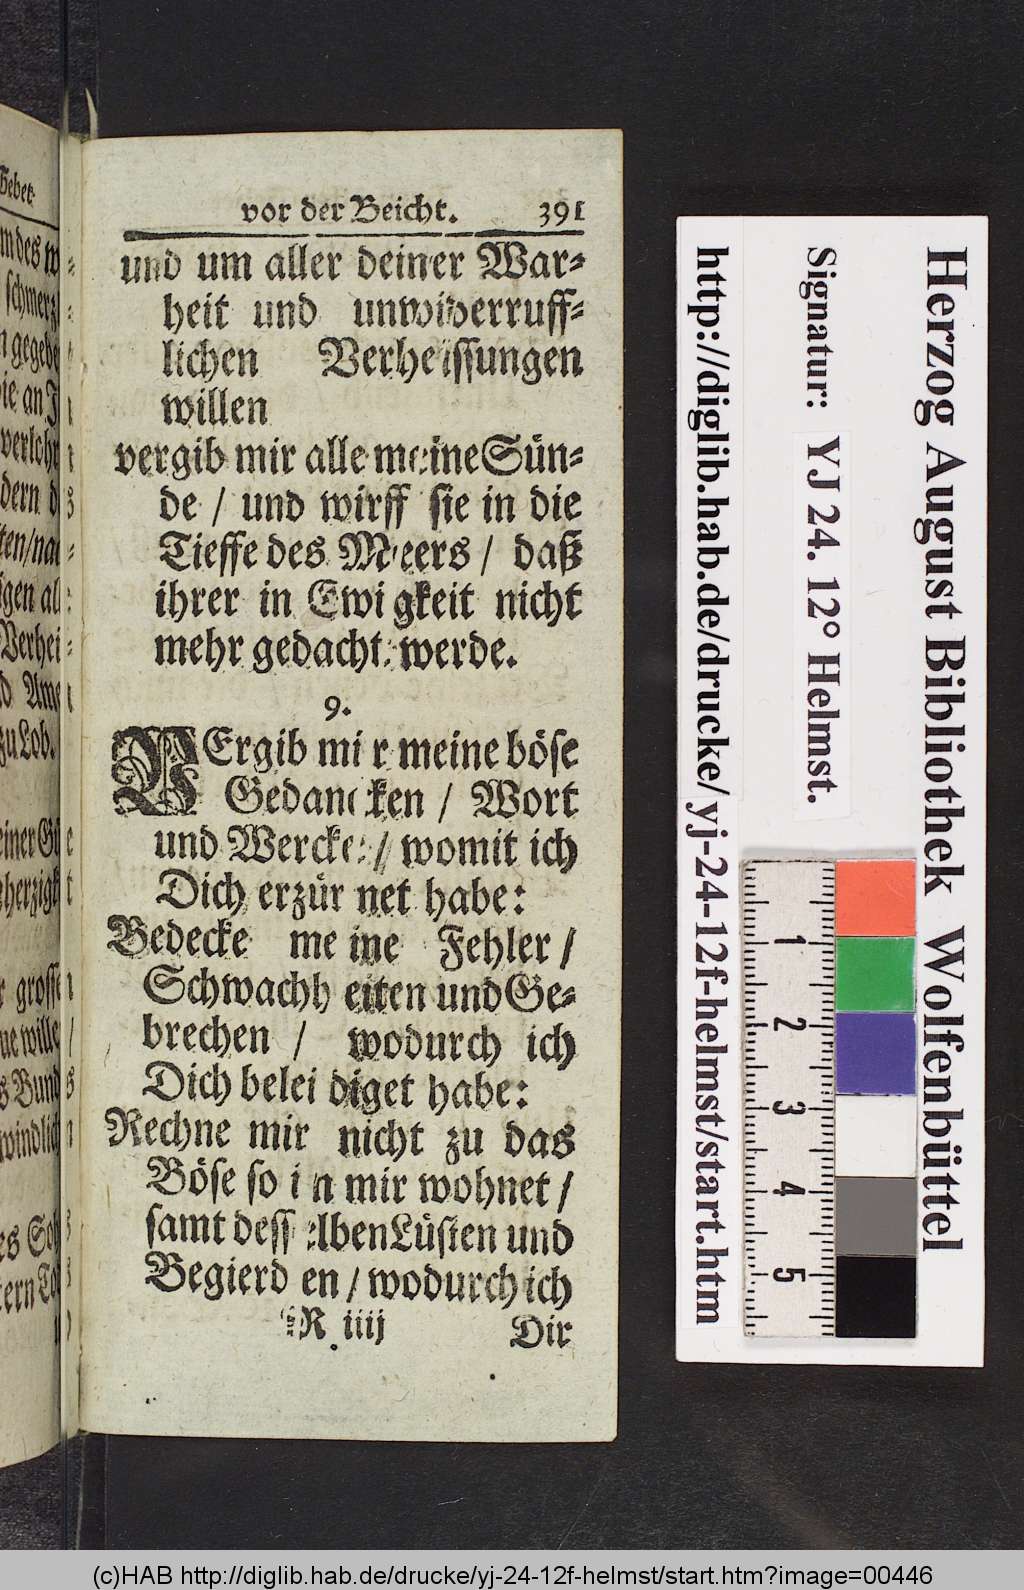 vor der Beicht. 391
und um aller deiner War-
heit und unwiderruff-
lichen Verheissungen
willen
vergib mir alle meine Sün-
de / und wirff sie in die
Tieffe des Meers / daß
ihrer in Ewigkeit nicht
mehr gedacht werde.
9.
VErgib mir meine böse
Gedancken / Wort
und Wercke / womit ich
Dich erzürnet habe:
Bedecke meine Fehler /
Schwachheiten und Ge-
brechen / wodurch ich
Dich beleidiget habe:
Rechne mir nicht zu das
Böse so in mir wohnet /
samt desselben Lüsten und
Begierden / wodurch ich
R iiij Dir
Herzog August Bibliothek Wolfenbüttel
Signatur: YJ 24. 12° Helmst.
http://diglib.hab.de/drucke/yj-24-12f-helmst/start.htm
1
2
3
4
5
(c)HAB http://diglib.hab.de/drucke/yj-24-12f-helmst/start.htm?image=00446